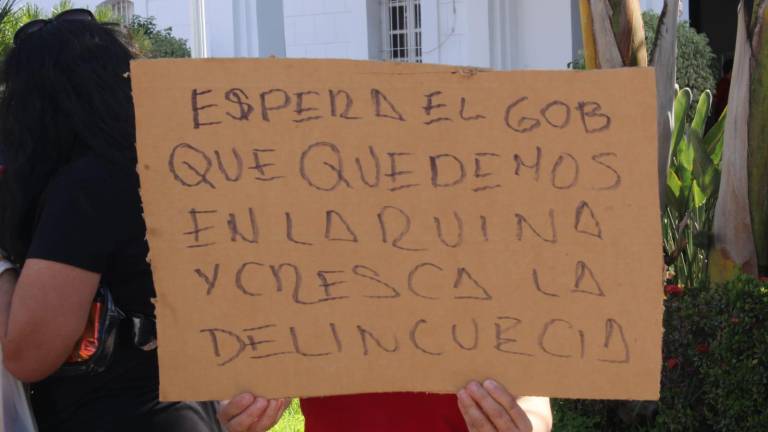 ESPERA EL GOB
QUE QUEDEMOS
EN LA RUINA
Y CRESCA LA
DELINCUECIA